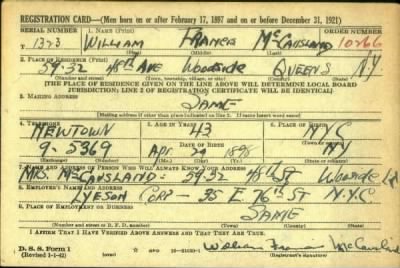 REGISTRATION CARD—(Men born on or after February 17, 1897 and on or before December 31, 1921)
SERIAL NUMBER 1. NAME (Print) ORDER NUMBER
1323 WILLIAM FRANCIS McCAUSLAND 10266
(First) (Middle) (Last)
2. PLACE OF RESIDENCE (Print)
59-32 Woodside QUEENS NY
(Number and street) (Town, township, village, or city) (County) (State)
[THE PLACE OF RESIDENCE GIVEN ON THE LINE ABOVE WILL DETERMINE LOCAL BOARD
JURISDICTION; LINE 2 OF REGISTRATION CERTIFICATE WILL BE IDENTICAL]
3. MAILING ADDRESS
SAME
[Mailing address if other than place indicated on line 2. If same insert word same]
4. TELEPHONE 5. AGE IN YEARS 6. PLACE OF BIRTH
NEWTOWN 43 NYC
DATE OF BIRTH (Town or county)
9-5369 Apr 29 1898 NY
(Exchange) (Number) (Mo.) (Day) (Yr.) (State or country)
7. NAME AND ADDRESS OF PERSON WHO WILL ALWAYS KNOW YOUR ADDRESS
MRS. McCAUSLAND 48th ST Woodside
8. EMPLOYER'S NAME AND ADDRESS
CORP 35 E 76th St N.Y.C.
9. PLACE OF EMPLOYMENT OR BUSINESS
SAME
(Number and street or R. F. D. number) (Town) (County) (State)
I AFFIRM THAT I HAVE VERIFIED ABOVE ANSWERS AND THAT THEY ARE TRUE.
D. S. S. Form 1 William Francis McCausland
(Revised 1-1-42) (Registrant's signature)